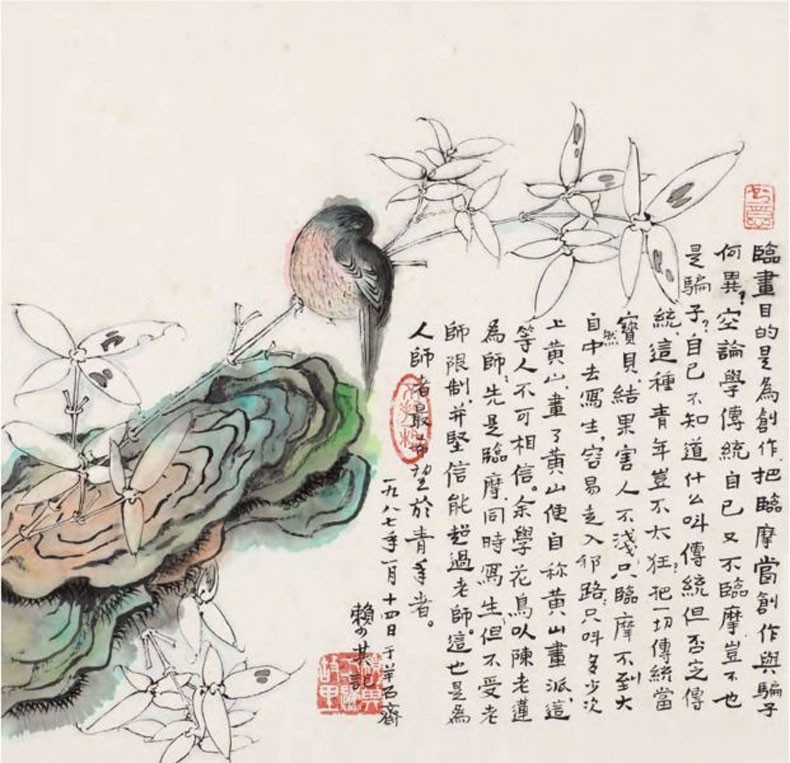 臨畫目的是為創作，把臨摩當創作與騙子
何異？空論學傳統自己又不臨摩，豈不也
是騙子？自己不知道什么叫傳統但否定傳
統，這種青年豈不太狂？把一切傳統當
寶貝結果害人不淺，只臨摩不到大
自然中去寫生，容易走入邪路，只叫多少次
上黄山，畫了黄山便自称黄山畫派，這
等人不可相信。余學花鳥以陳老蓮
為師，先是臨摩，同時寫生，但不受老
師限制，并堅信能超過老師。這也是為
人師者最希望於青年者。
一九八七年一月十四日于羊石齋
賴少其記